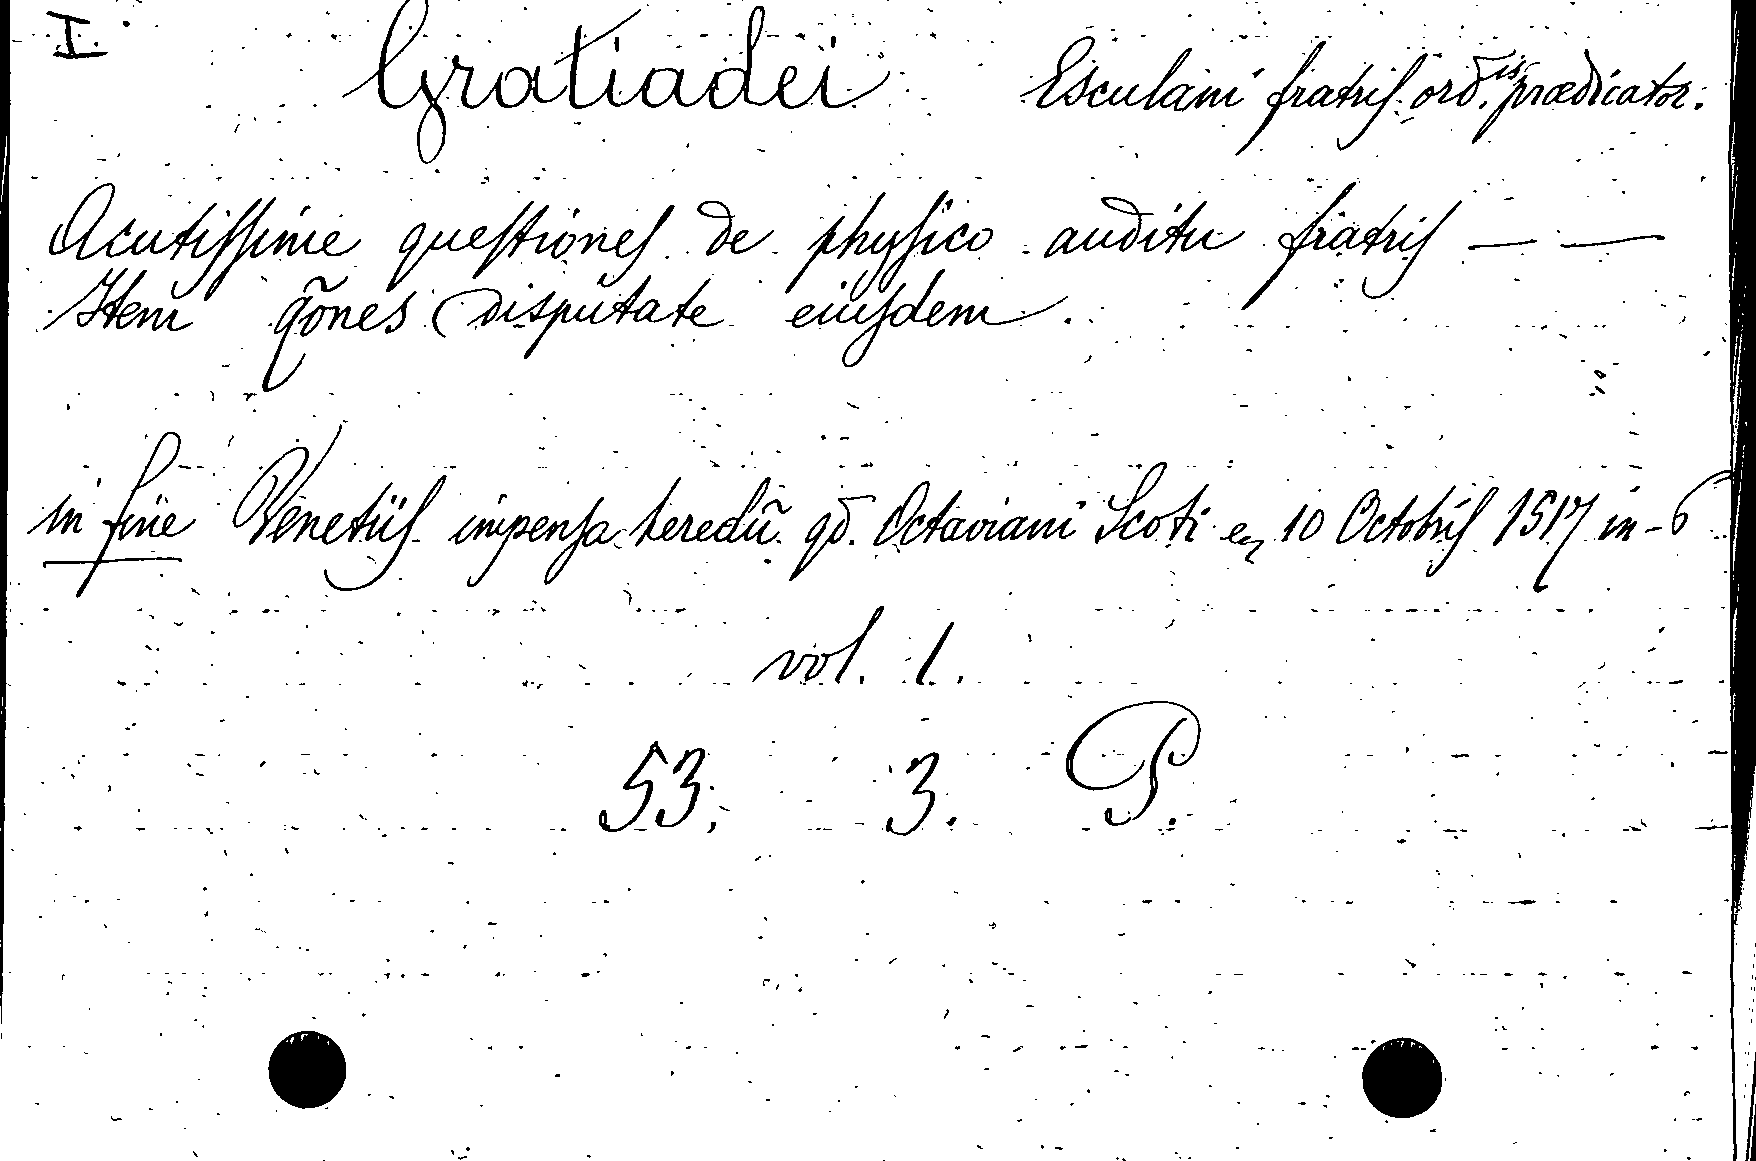 I. Gratiadei Esculani fratris ord.is prædicator.
Acutissime questiones de physico auditu fratris — —
Item qões disputate eiusdem.
in fine Venetiis impensa heredũ qd. Octaviani Scoti 10 Octobris 1517 in-6
vol. 1.
53. 3. P.